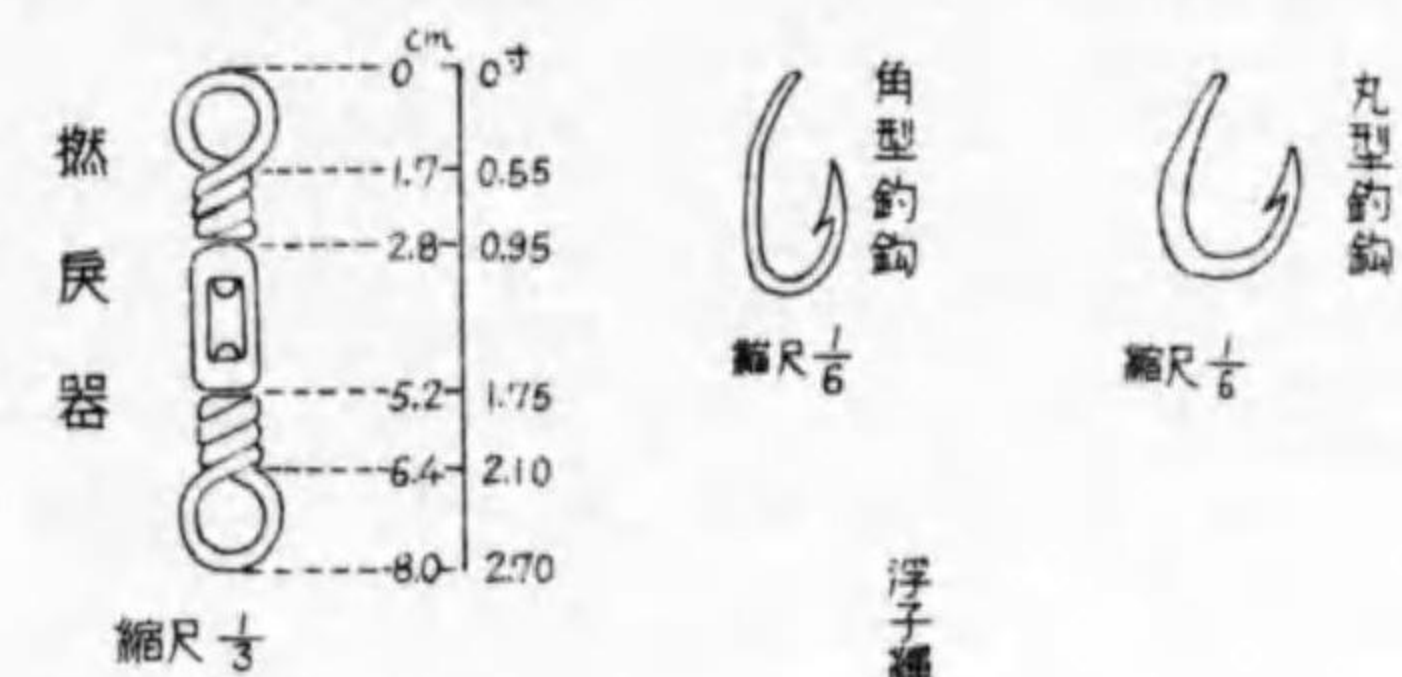 撚戻器
cm 寸
0 0
1.7 0.55
2.8 0.95
5.2 1.75
6.4 2.10
8.0 2.70
縮尺 1/3
角型釣鈎
縮尺 1/6
丸型釣鈎
縮尺 1/6
浮子繩